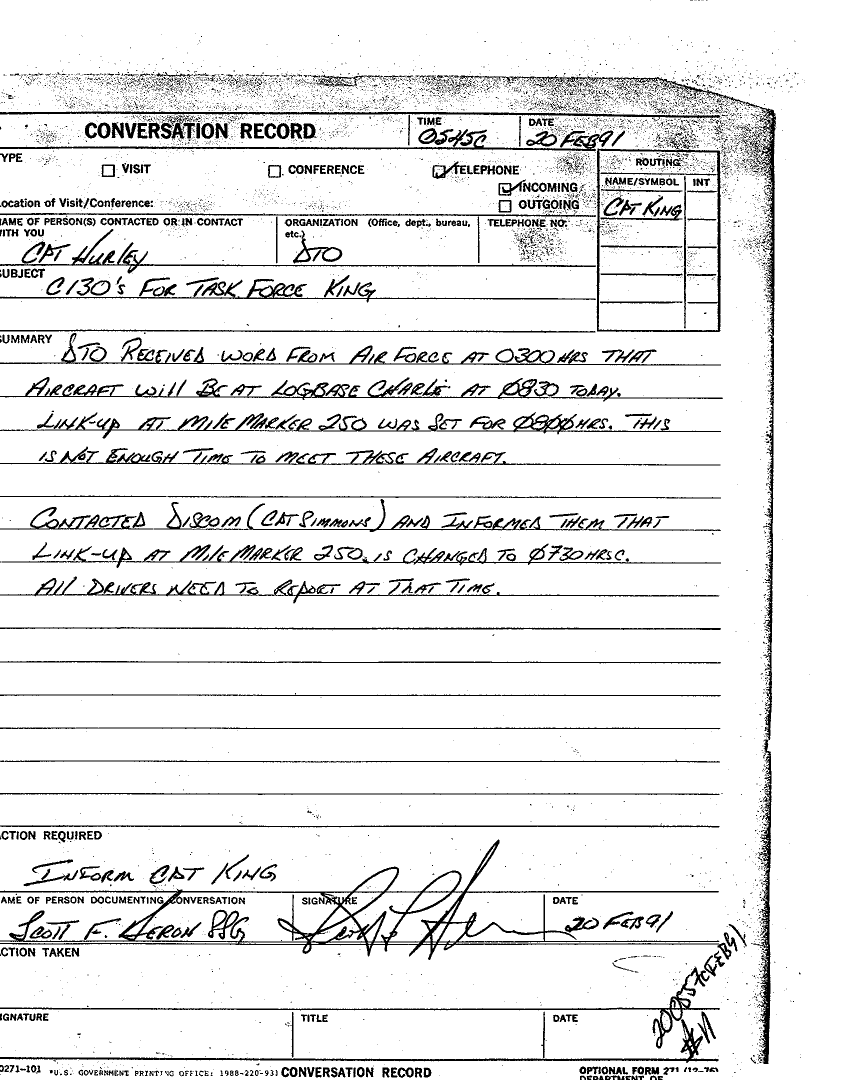 CONVERSATION RECORD
TIME
0545C
DATE
20 FEB91
TYPE
VISIT
CONFERENCE
TELEPHONE
INCOMING
OUTGOING
ROUTING
NAME/SYMBOL INT
CPT KING
Location of Visit/Conference:
NAME OF PERSON(S) CONTACTED OR IN CONTACT
WITH YOU
CPT HURLEY
ORGANIZATION (Office, dept., bureau,
etc.)
DTO
TELEPHONE NO.
SUBJECT
C130's FOR TASK FORCE KING
SUMMARY
DTO RECEIVED WORD FROM AIR FORCE AT 0300 HRS THAT
AIRCRAFT WILL BE AT LOGBASE CHARLIE AT 0830 TODAY.
LINK-UP AT MILE MARKER 250 WAS SET FOR 0800HRS. THIS
IS NOT ENOUGH TIME TO MEET THESE AIRCRAFT.
CONTACTED DISCOM (CPT SIMMONS) AND INFORMED THEM THAT
LINK-UP AT MILE MARKER 250 IS CHANGED TO 0730HRSC.
All DRIVERS NEED TO REPORT AT THAT TIME.
ACTION REQUIRED
INFORM CPT KING
NAME OF PERSON DOCUMENTING CONVERSATION
SCOTT F. HERON SSG
SIGNATURE
DATE
20 FEB91
ACTION TAKEN
SIGNATURE
TITLE
DATE
200557C FEB91
#11
0271-101 *U.S. GOVERNMENT PRINTING OFFICE: 1988-220-931 CONVERSATION RECORD
OPTIONAL FORM 271 (12-76)
DEPARTMENT OF